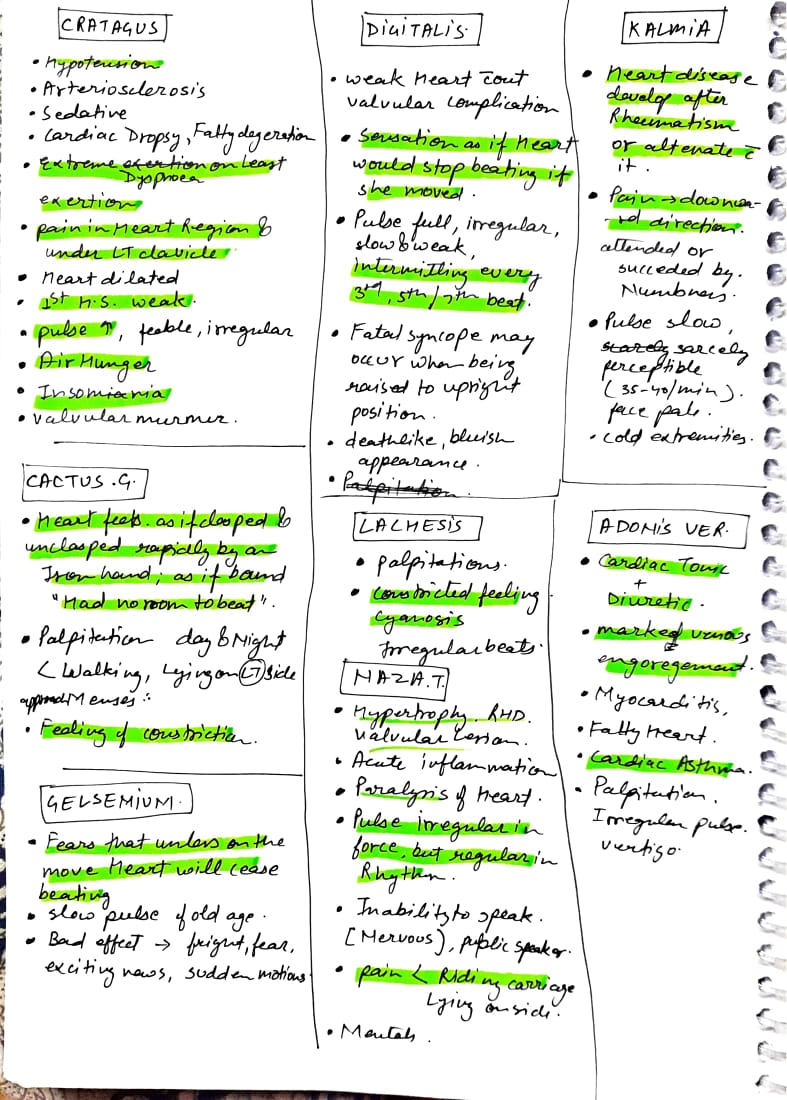 CRATAGUS
• Hypotension
• Arteriosclerosis
• Sedative
• Cardiac Dropsy, Fatty degeration
• Extreme exertion on Least
Dyspnoea
exertion
• pain in Heart Region &
under LT clavicle
• Heart dilated
• 1st H.S. weak.
• pulse ↑, feable, irregular
• Air Hunger
• Insomiania
• valvular murmer.
CACTUS .G.
• Heart feels. as if clasped &
unclasped rapidly by an
Iron hand; as if bound
"Had no room to beat".
• Palpitation day & Night
< Walking, Lying on LT side
approach Menses ∴
• Feeling of constriction.
GELSEMIUM.
• Fears that unless on the
move Heart will cease
beating
• slow pulse of old age.
• Bad effect → fright, fear,
exciting news, sudden motions
DIGITALIS.
• weak Heart c̄out
valvular complication
• Sensation as if Heart
would stop beating if
she moved.
• Pulse full, irregular,
slow & weak,
intermitting every
3rd, 5th/7th beat.
• Fatal syncope may
occur when being
raised to upright
position.
• deathlike, bluish
appearance.
• Palpitation.
LACHESIS
• palpitations.
• constricted feeling
cyanosis
Irregular beats.
NAZA.T.
• Hypertrophy. RHD.
Valvular Lesion.
• Acute inflammation
• Paralysis of Heart.
• Pulse irregular in
force, but regular in
Rhythm.
• Inability to speak.
[Nervous], public speaker.
• pain < Riding carriage
Lying on side.
• Mentals.
KALMIA
• Heart disease
develop after
Rheumatism
or altenate c̄
it.
• Pain → downwa-
-rd direction.
attended or
succeded by.
Numbness.
• Pulse slow,
scarely sarcely
perceptible
(35-40/min).
face pale.
• cold extremities.
ADONIS VER.
• Cardiac Tonic
+
Diuretic.
• marked venous
engoregement.
• Myocarditis,
• Fatty Heart.
• Cardiac Asthma.
• Palpitation.
Irregular pulse.
vertigo.